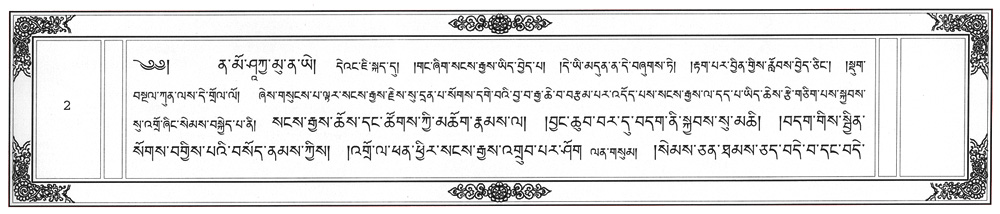 ༄༅། ན་མོ་ཤཱཀྱ་མུ་ན་ཡེ། དེའང་ཇི་སྐད་དུ། །གང་ཞིག་སངས་རྒྱས་ཡིད་བྱེད་པ། །དེ་ཡི་མདུན་ན་དེ་བཞུགས་ཏེ། །རྟག་པར་བྱིན་གྱིས་རློབས་བྱེད་ཅིང་། །སྡུག་
བསྔལ་ཀུན་ལས་དེ་གྲོལ་ལོ། ཞེས་གསུངས་པ་ལྟར་སངས་རྒྱས་རྗེས་སུ་དྲན་པ་སོགས་དགེ་བའི་བྱ་བ་རྒྱ་ཆེ་བ་བརྩམ་པར་འདོད་པས་སངས་རྒྱས་ལ་དད་པ་ཡིད་ཆེས་རྩེ་གཅིག་པས་སྐྱབས་
2
སུ་འགྲོ་ཞིང་སེམས་བསྐྱེད་པ་ནི། སངས་རྒྱས་ཆོས་དང་ཚོགས་ཀྱི་མཆོག་རྣམས་ལ། །བྱང་ཆུབ་བར་དུ་བདག་ནི་སྐྱབས་སུ་མཆི། །བདག་གིས་སྦྱིན་
སོགས་བགྱིས་པའི་བསོད་ནམས་ཀྱིས། །འགྲོ་ལ་ཕན་ཕྱིར་སངས་རྒྱས་འགྲུབ་པར་ཤོག ལན་གསུམ། །སེམས་ཅན་ཐམས་ཅད་བདེ་བ་དང་བདེ་